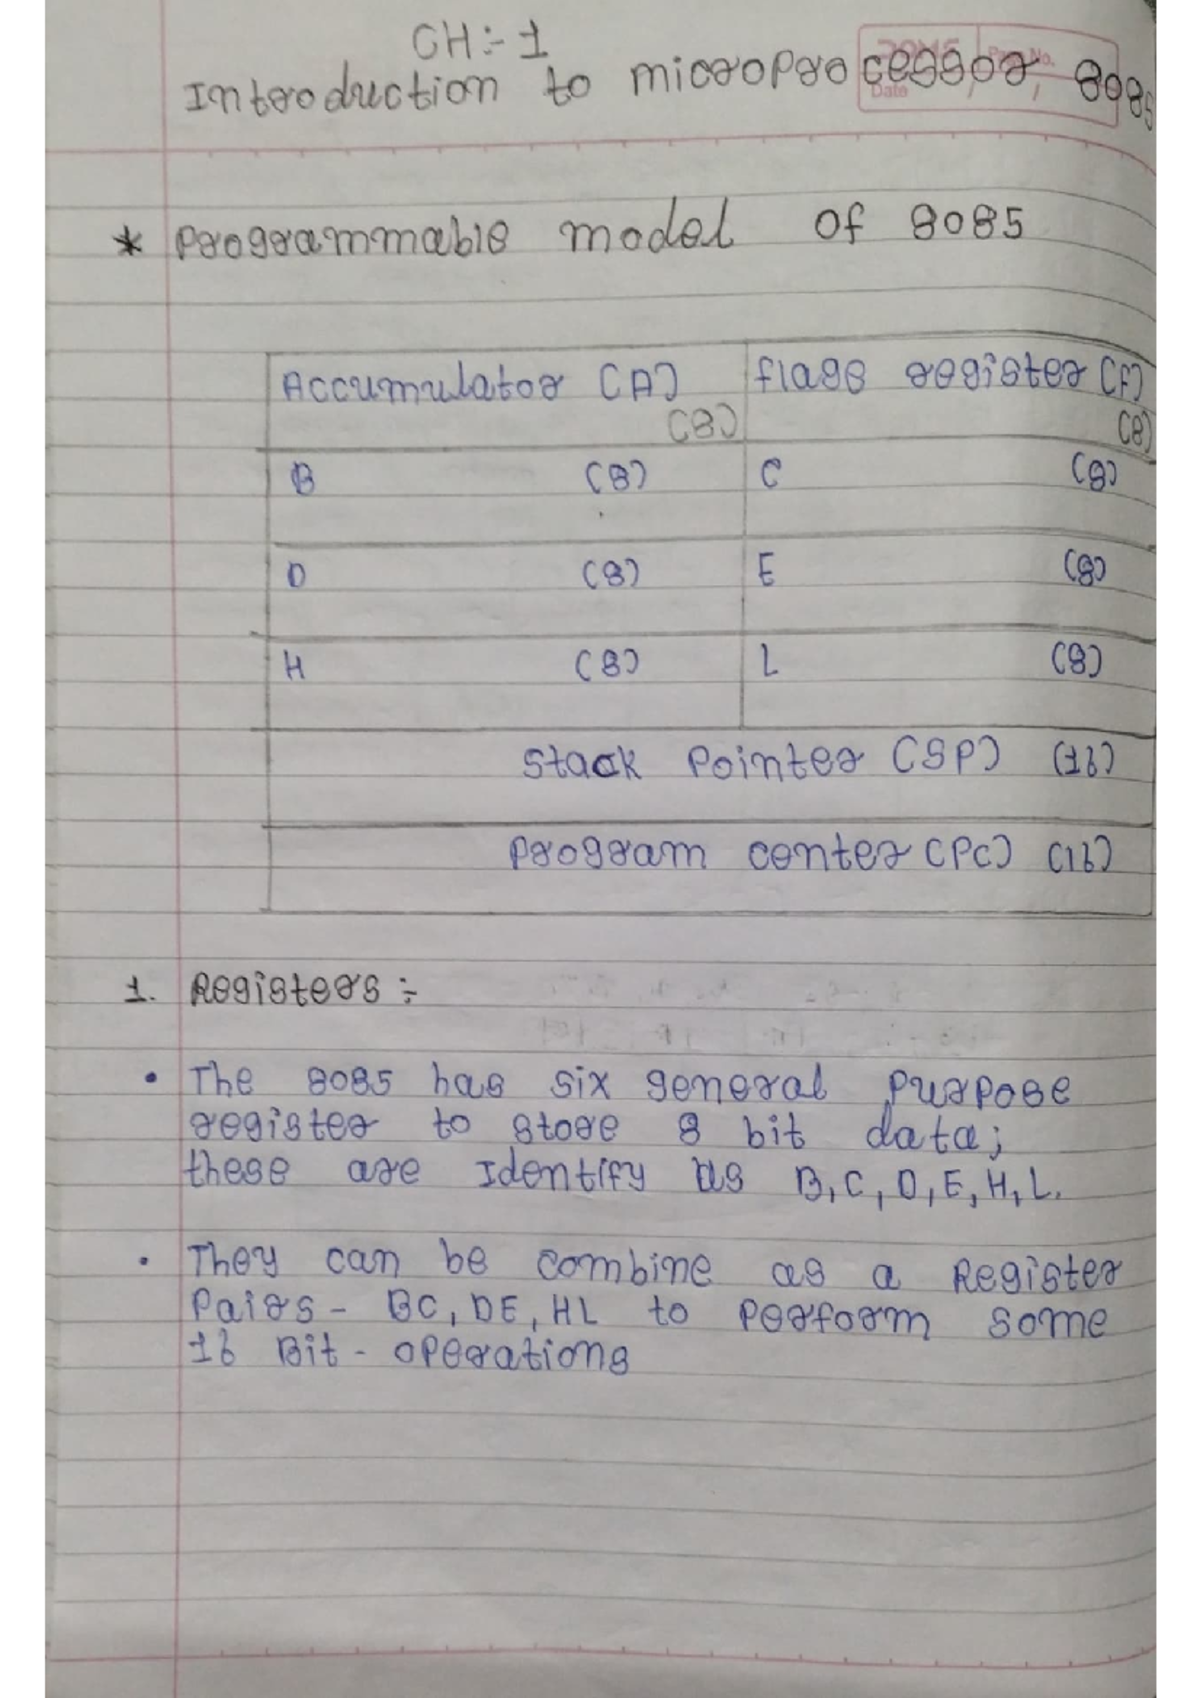 CH:- 1
Introduction to microprocessor 8085
Page No.
Date
* Programmable model of 8085
Accumulator (A) flage register (F)
(8) (8)
B (8) C (8)
D (8) E (8)
H (8) L (8)
Stack Pointer (SP) (16)
Program conter (PC) (16)
1. Registers :-
• The 8085 has six general purpose
register to store 8 bit data;
these are Identify as B, C, D, E, H, L.
• They can be combine as a Register
Pairs - BC, DE, HL to perform some
16 Bit - operations